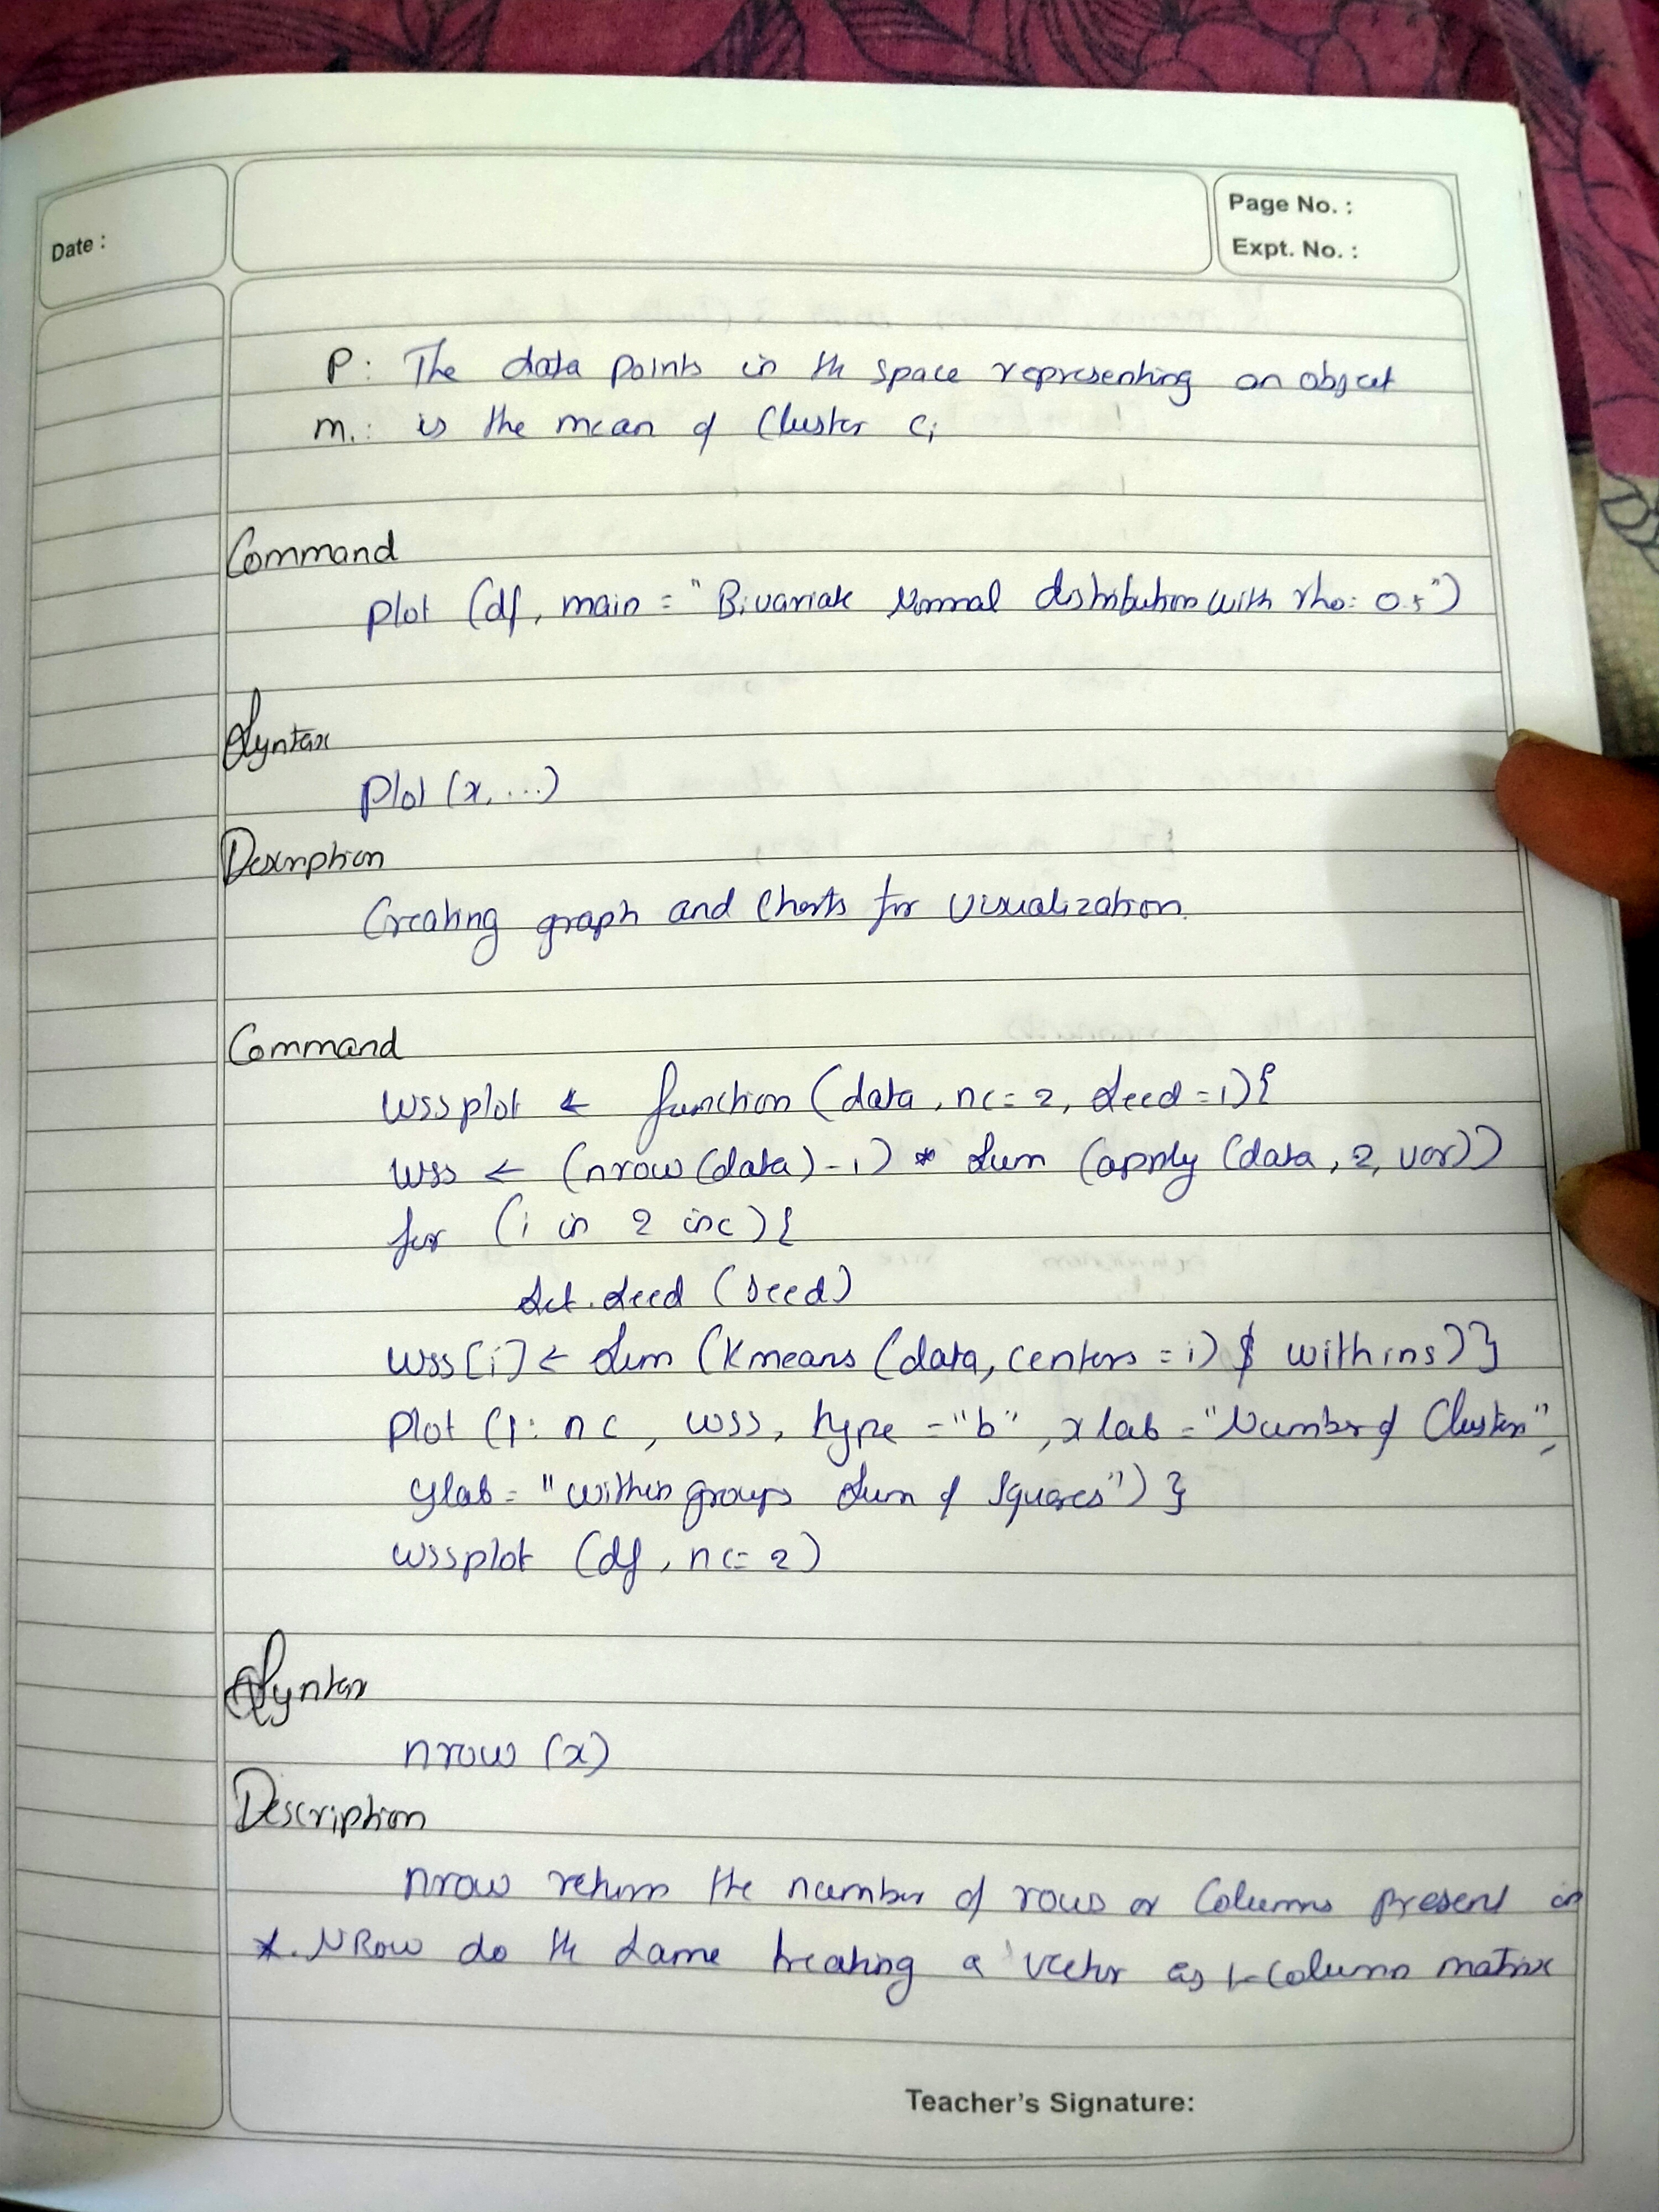 Date :
Page No. :
Expt. No. :
P: The data points in the space representing an object
mi: is the mean of Cluster Ci
Command
plot (df, main = "Bivariate Normal distribution with rho: 0.5")
Syntax
plot (x, ...)
Description
Creating graph and Charts for visualization.
Command
wssplot ← function (data, nc = 2, seed = 1) {
wss ← (nrow (data) - 1) * sum (apply (data, 2, var))
for (i in 2 inc) {
set.seed (seed)
wss [i] ← sum (Kmeans (data, centers = i) $ withins) }
plot (1: nc, wss, type = "b", xlab = "Number of Clusters",
ylab = "within groups sum of squares") }
wssplot (df, nc = 2)
Syntax
nrow (x)
Description
nrow return the number of rows or Columns present in
x. NRow do the same treating a vector as 1-Column matrix
Teacher's Signature: